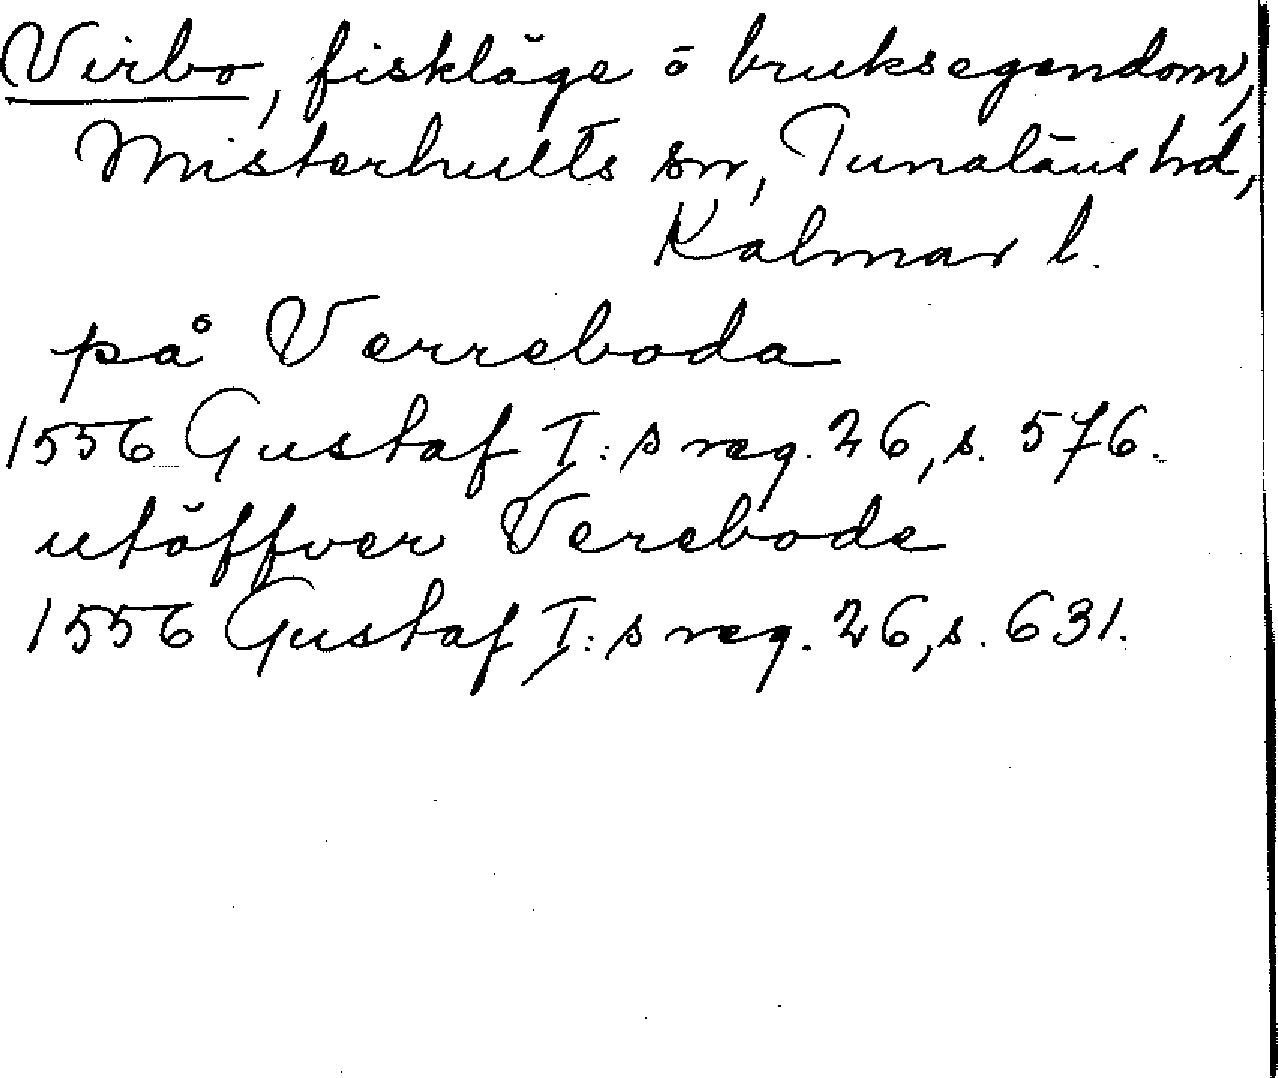 Virbo, fiskläge ō bruksegendom,
Misterhults sn, Tunaläns hd,
Kalmar l.
på Verreboda
1556 Gustaf I:s reg. 26, s. 576.
utöffver Verebode
1556 Gustaf I:s reg. 26, s. 631.